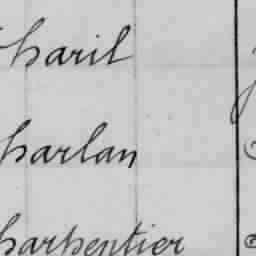 Charil
Charlan
Charpentier